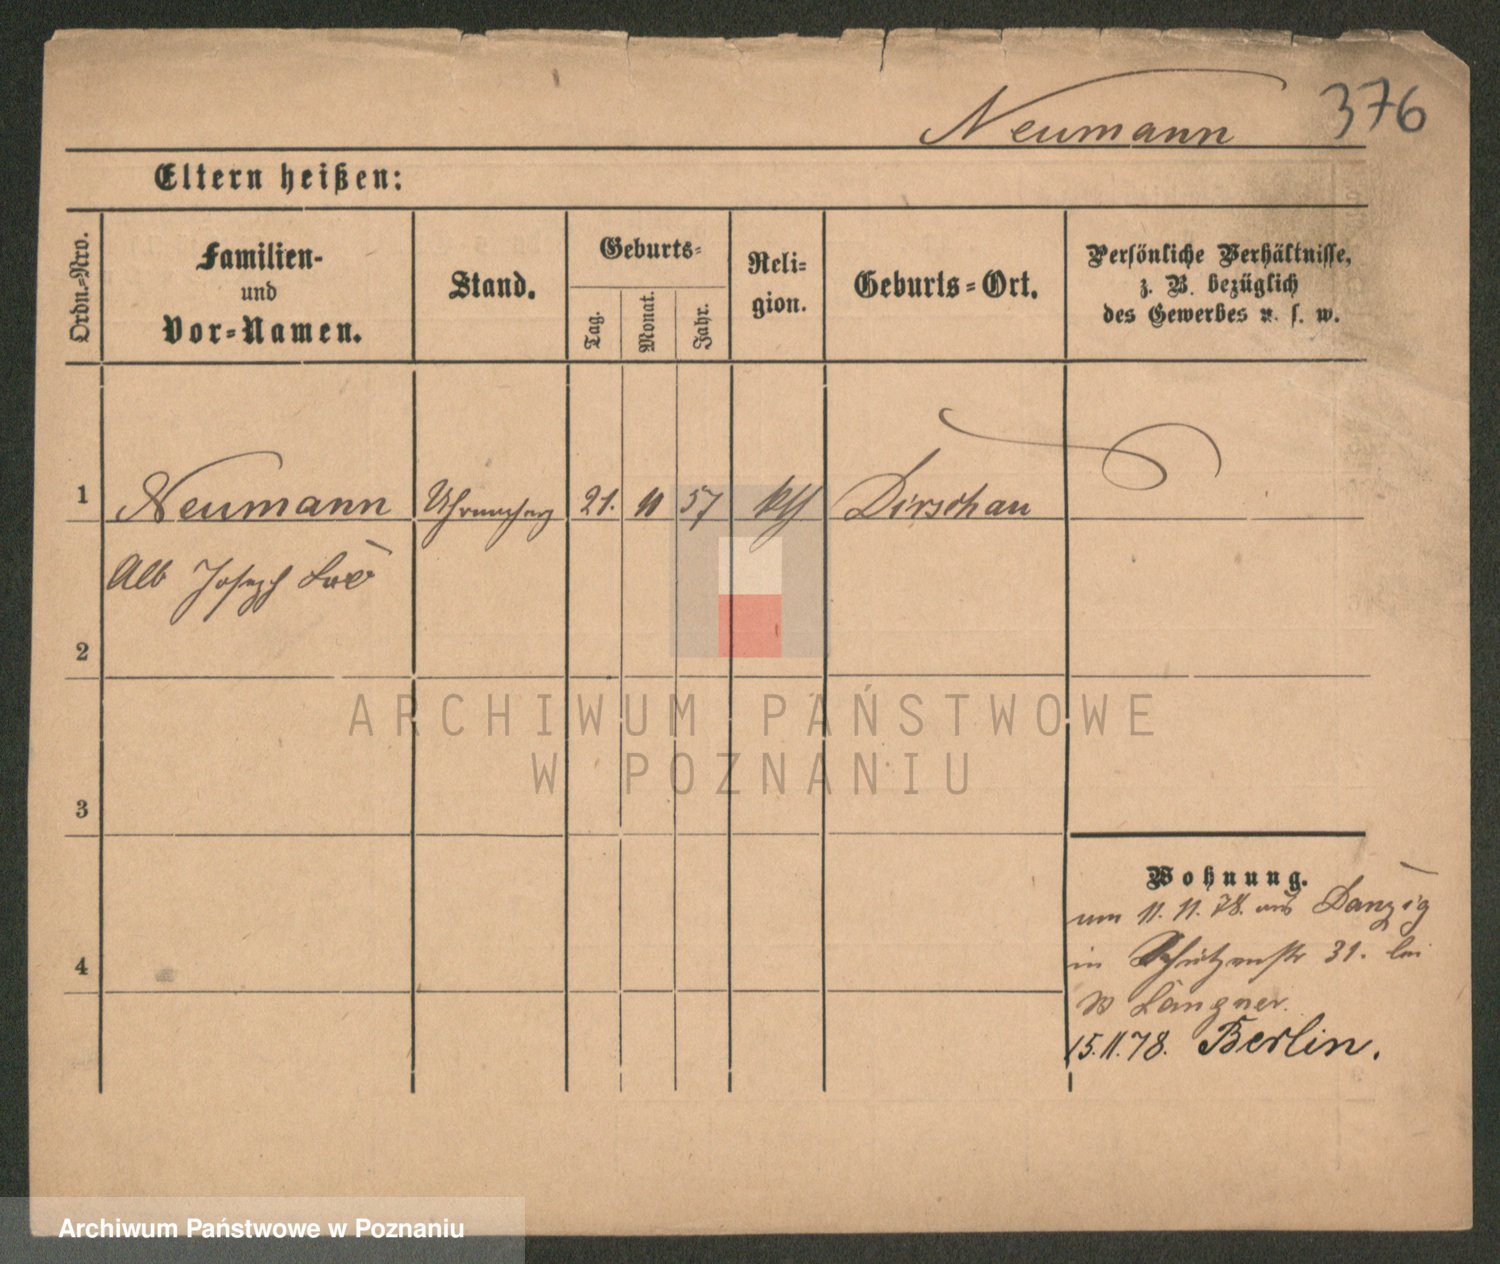 Neumann 376
Eltern heißen:
Ordn.-Nro.
Familien-
und
Vor-Namen.
Stand.
Geburts-
Tag.
Monat.
Jahr.
Reli-
gion.
Geburts-Ort.
Persönliche Verhältnisse,
z. B. bezüglich
des Gewerbes u. s. w.
1 Neumann Uhrmacher 21. 11 57 kth Dirschau
Alb Joseph
2
3
4
Wohnung.
um 11. 11. 78. aus Danzig
in Schützenstr 31. bei
W Langner.
15.11.78. Berlin.
ARCHIWUM PAŃSTWOWE
W POZNANIU
Archiwum Państwowe w Poznaniu